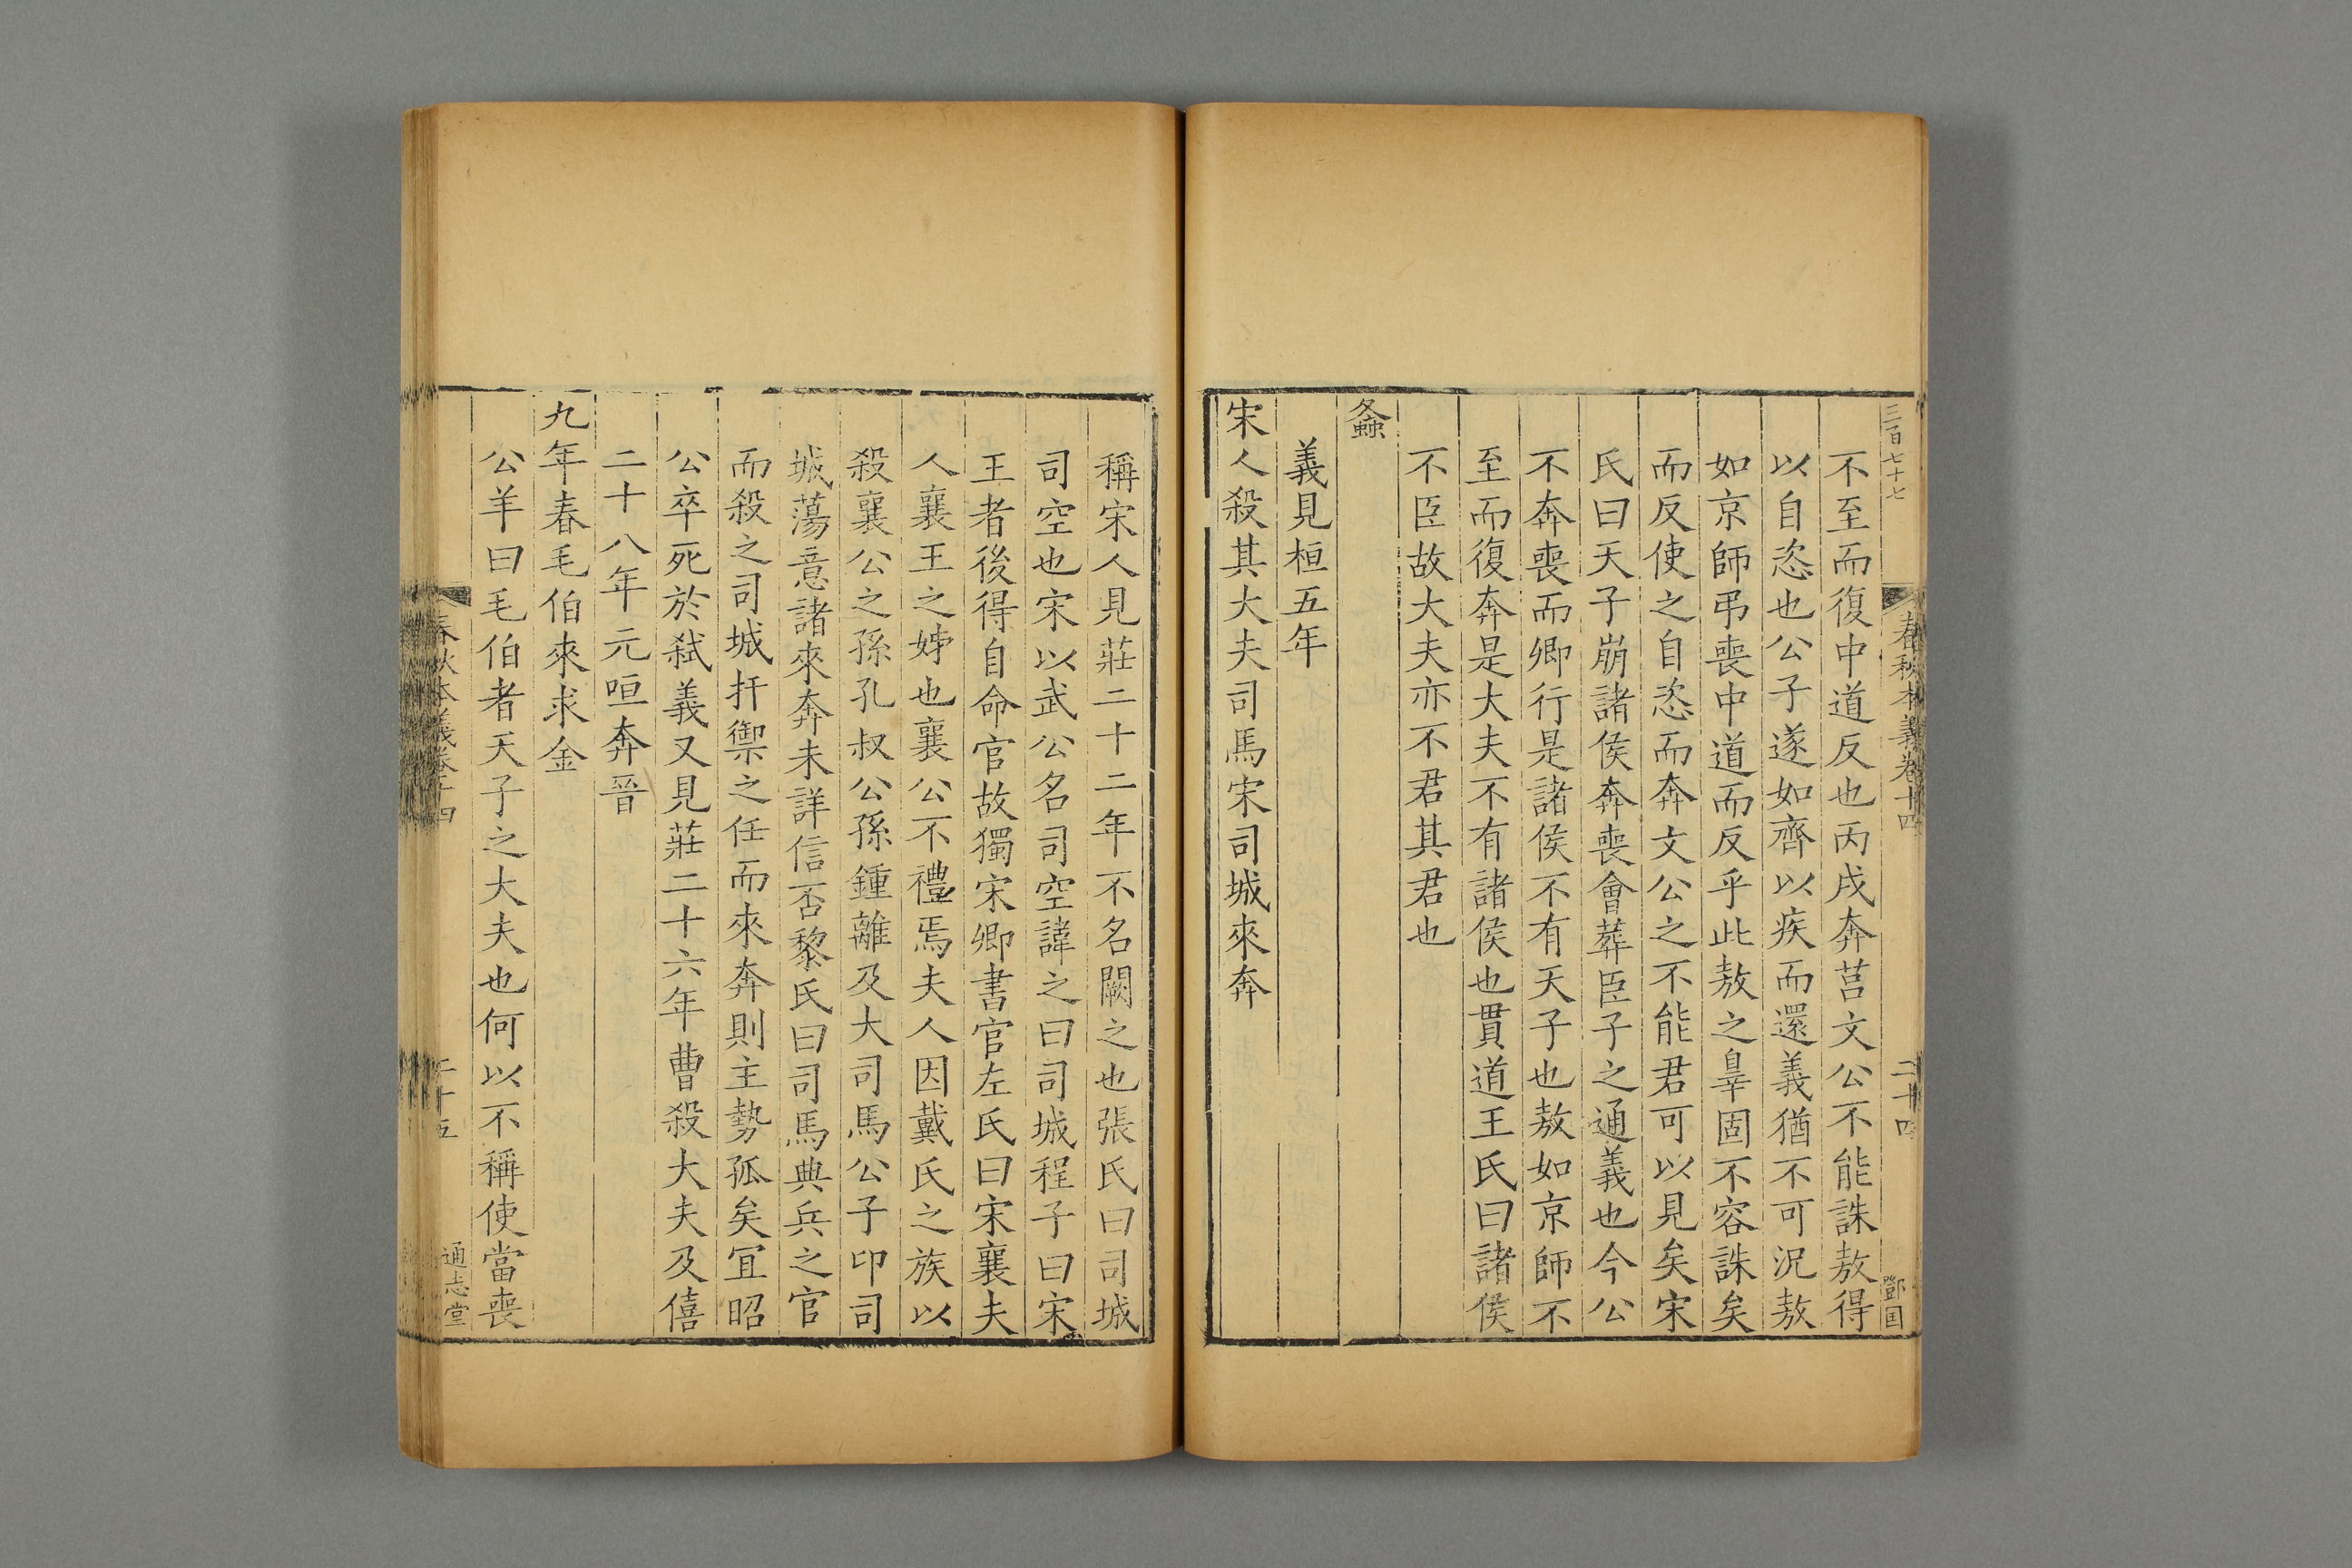 三百七十七
春秋本義卷十四
二十四
鄧国
不至而復中道反也丙戌奔莒文公不能誅敖得
以自恣也公子遂如齊以疾而還義猶不可況敖
如京師弔喪中道而反乎此敖之辠固不容誅矣
而反使之自恣而奔文公之不能君可以見矣宋
氏曰天子崩諸侯奔喪會葬臣子之通義也今公
不奔喪而卿行是諸侯不有天子也敖如京師不
至而復奔是大夫不有諸侯也貫道王氏曰諸侯
不臣故大夫亦不君其君也
螽
義見桓五年
宋人殺其大夫司馬宋司城來奔
稱宋人見莊二十二年不名闕之也張氏曰司城
司空也宋以武公名司空諱之曰司城程子曰宋
王者後得自命官故獨宋卿書官左氏曰宋襄夫
人襄王之姊也襄公不禮焉夫人因戴氏之族以
殺襄公之孫孔叔公孫鍾離及大司馬公子卬司
城蕩意諸來奔未詳信否黎氏曰司馬典兵之官
而殺之司城扞禦之任而來奔則主勢孤矣冝昭
公卒死於弑義又見莊二十六年曹殺大夫及僖
二十八年元咺奔晉
九年春毛伯來求金
公羊曰毛伯者天子之大夫也何以不稱使當喪
春秋本義卷十四
二十五
通志堂